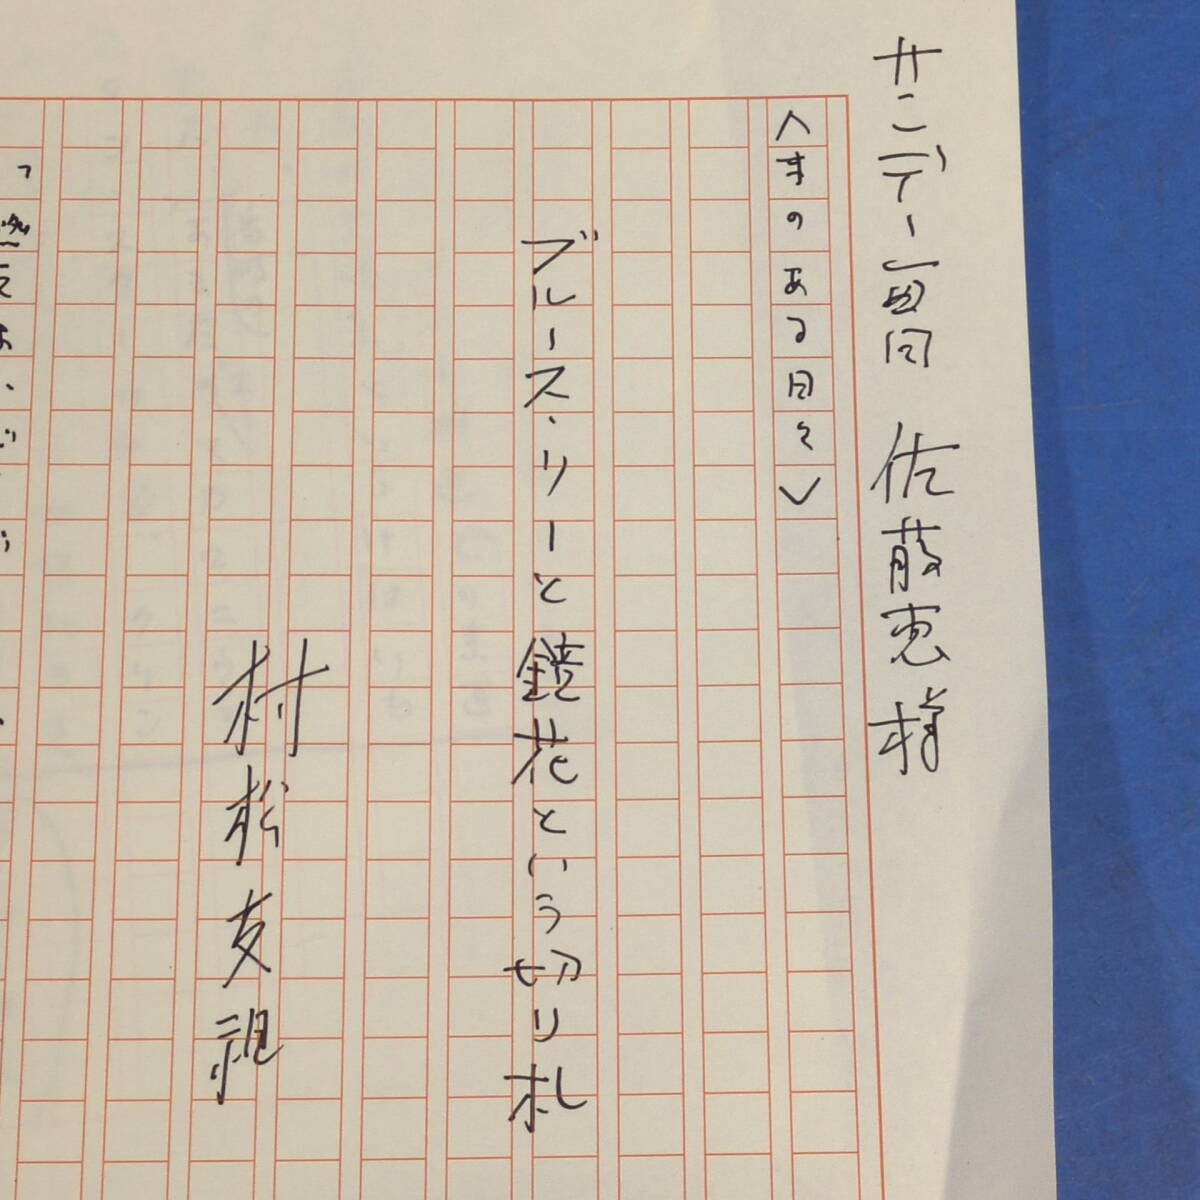 サンデー毎日 佐藤恵様
〈本のある日々〉
ブルース・リーと鏡花という切り札
村松友視